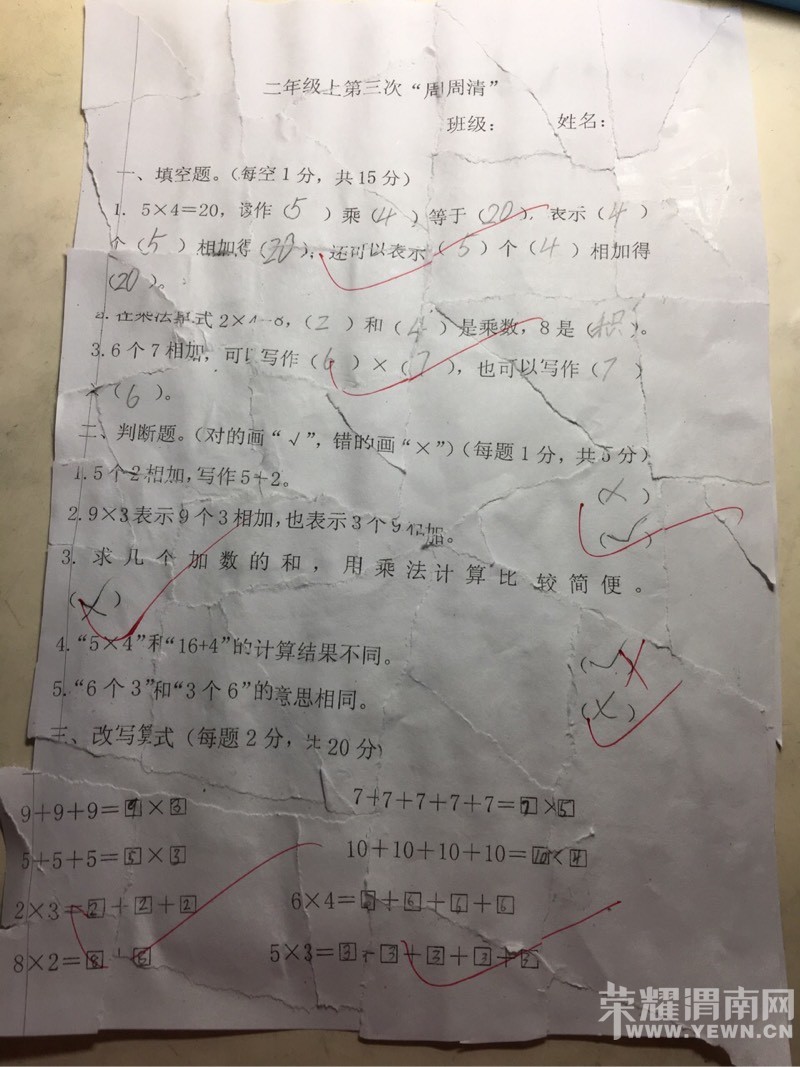 二年级上第三次“周周清”
班级： 姓名：
一、填空题。（每空1分，共15分）
1. 5×4=20，读作（5）乘（4）等于（20），表示（4）
个（5）相加得（20），还可以表示（5）个（4）相加得
（20）。
2.在乘法算式2×4=8，（2）和（4）是乘数，8是（积）。
3.6个7相加，可以写作（6）×（7），也可以写作（7）
×（6）。
二、判断题。（对的画“√”，错的画“×”）（每题1分，共5分）
1.5个2相加，写作5+2。 （×）
2.9×3表示9个3相加，也表示3个9相加。 （√）
3. 求几个加数的和，用乘法计算比较简便。
（×）
4.“5×4”和“16+4”的计算结果不同。 （√）
5.“6个3”和“3个6”的意思相同。 （×）
三、改写算式（每题2分，共20分）
9+9+9=9×3 7+7+7+7+7=7×5
5+5+5=5×3 10+10+10+10=10×4
2×3=2+2+2 6×4=6+6+6+6
8×2=8+8 5×3=3+3+3+3+3
荣耀渭南网
WWW.YEWN.CN